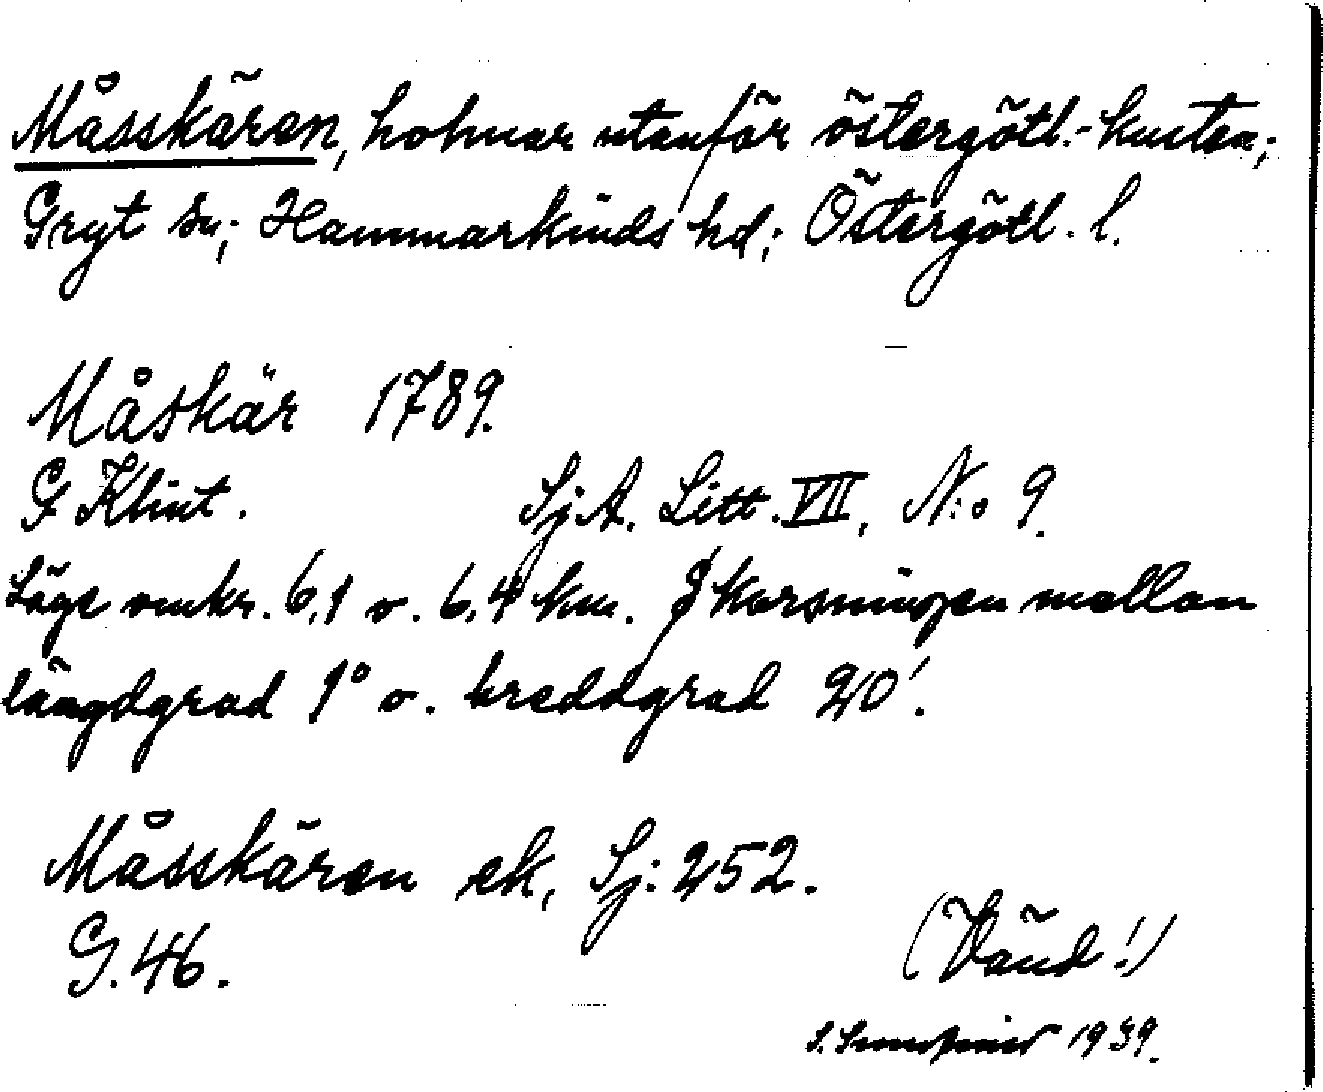 Måsskären, holmar utanför östergötl.-kusten;
Gryt sn; Hammarkinds hd; Östergötl. l.
Måskär 1789.
G Klint. SjA. Litt. VII, N:o 9.
Läge omkr. 6,1 o. 6,4 km. fr korsningen mellan
längdgrad 1° o. breddgrad 20'.
Måsskären ek, Sj: 252.
G. 46.
(Vänd!)
S. 1939.